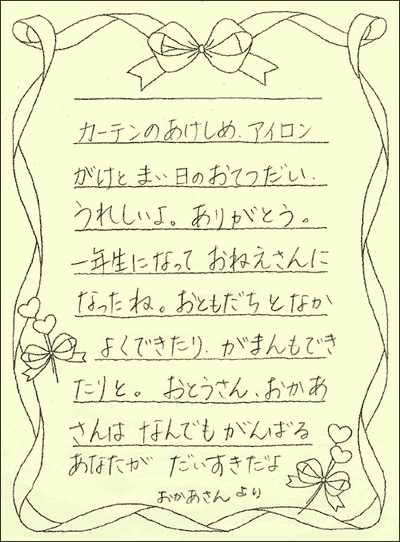 カーテンのあけしめ、アイロン
がけと まい日のおてつだい、
うれしいよ。ありがとう。
一年生になって おねえさんに
なったね。おともだちとなか
よくできたり、がまんもでき
たりと。 おとうさん、おかあ
さんは なんでも がんばる
あなたが だいすきだよ
おかあさん より